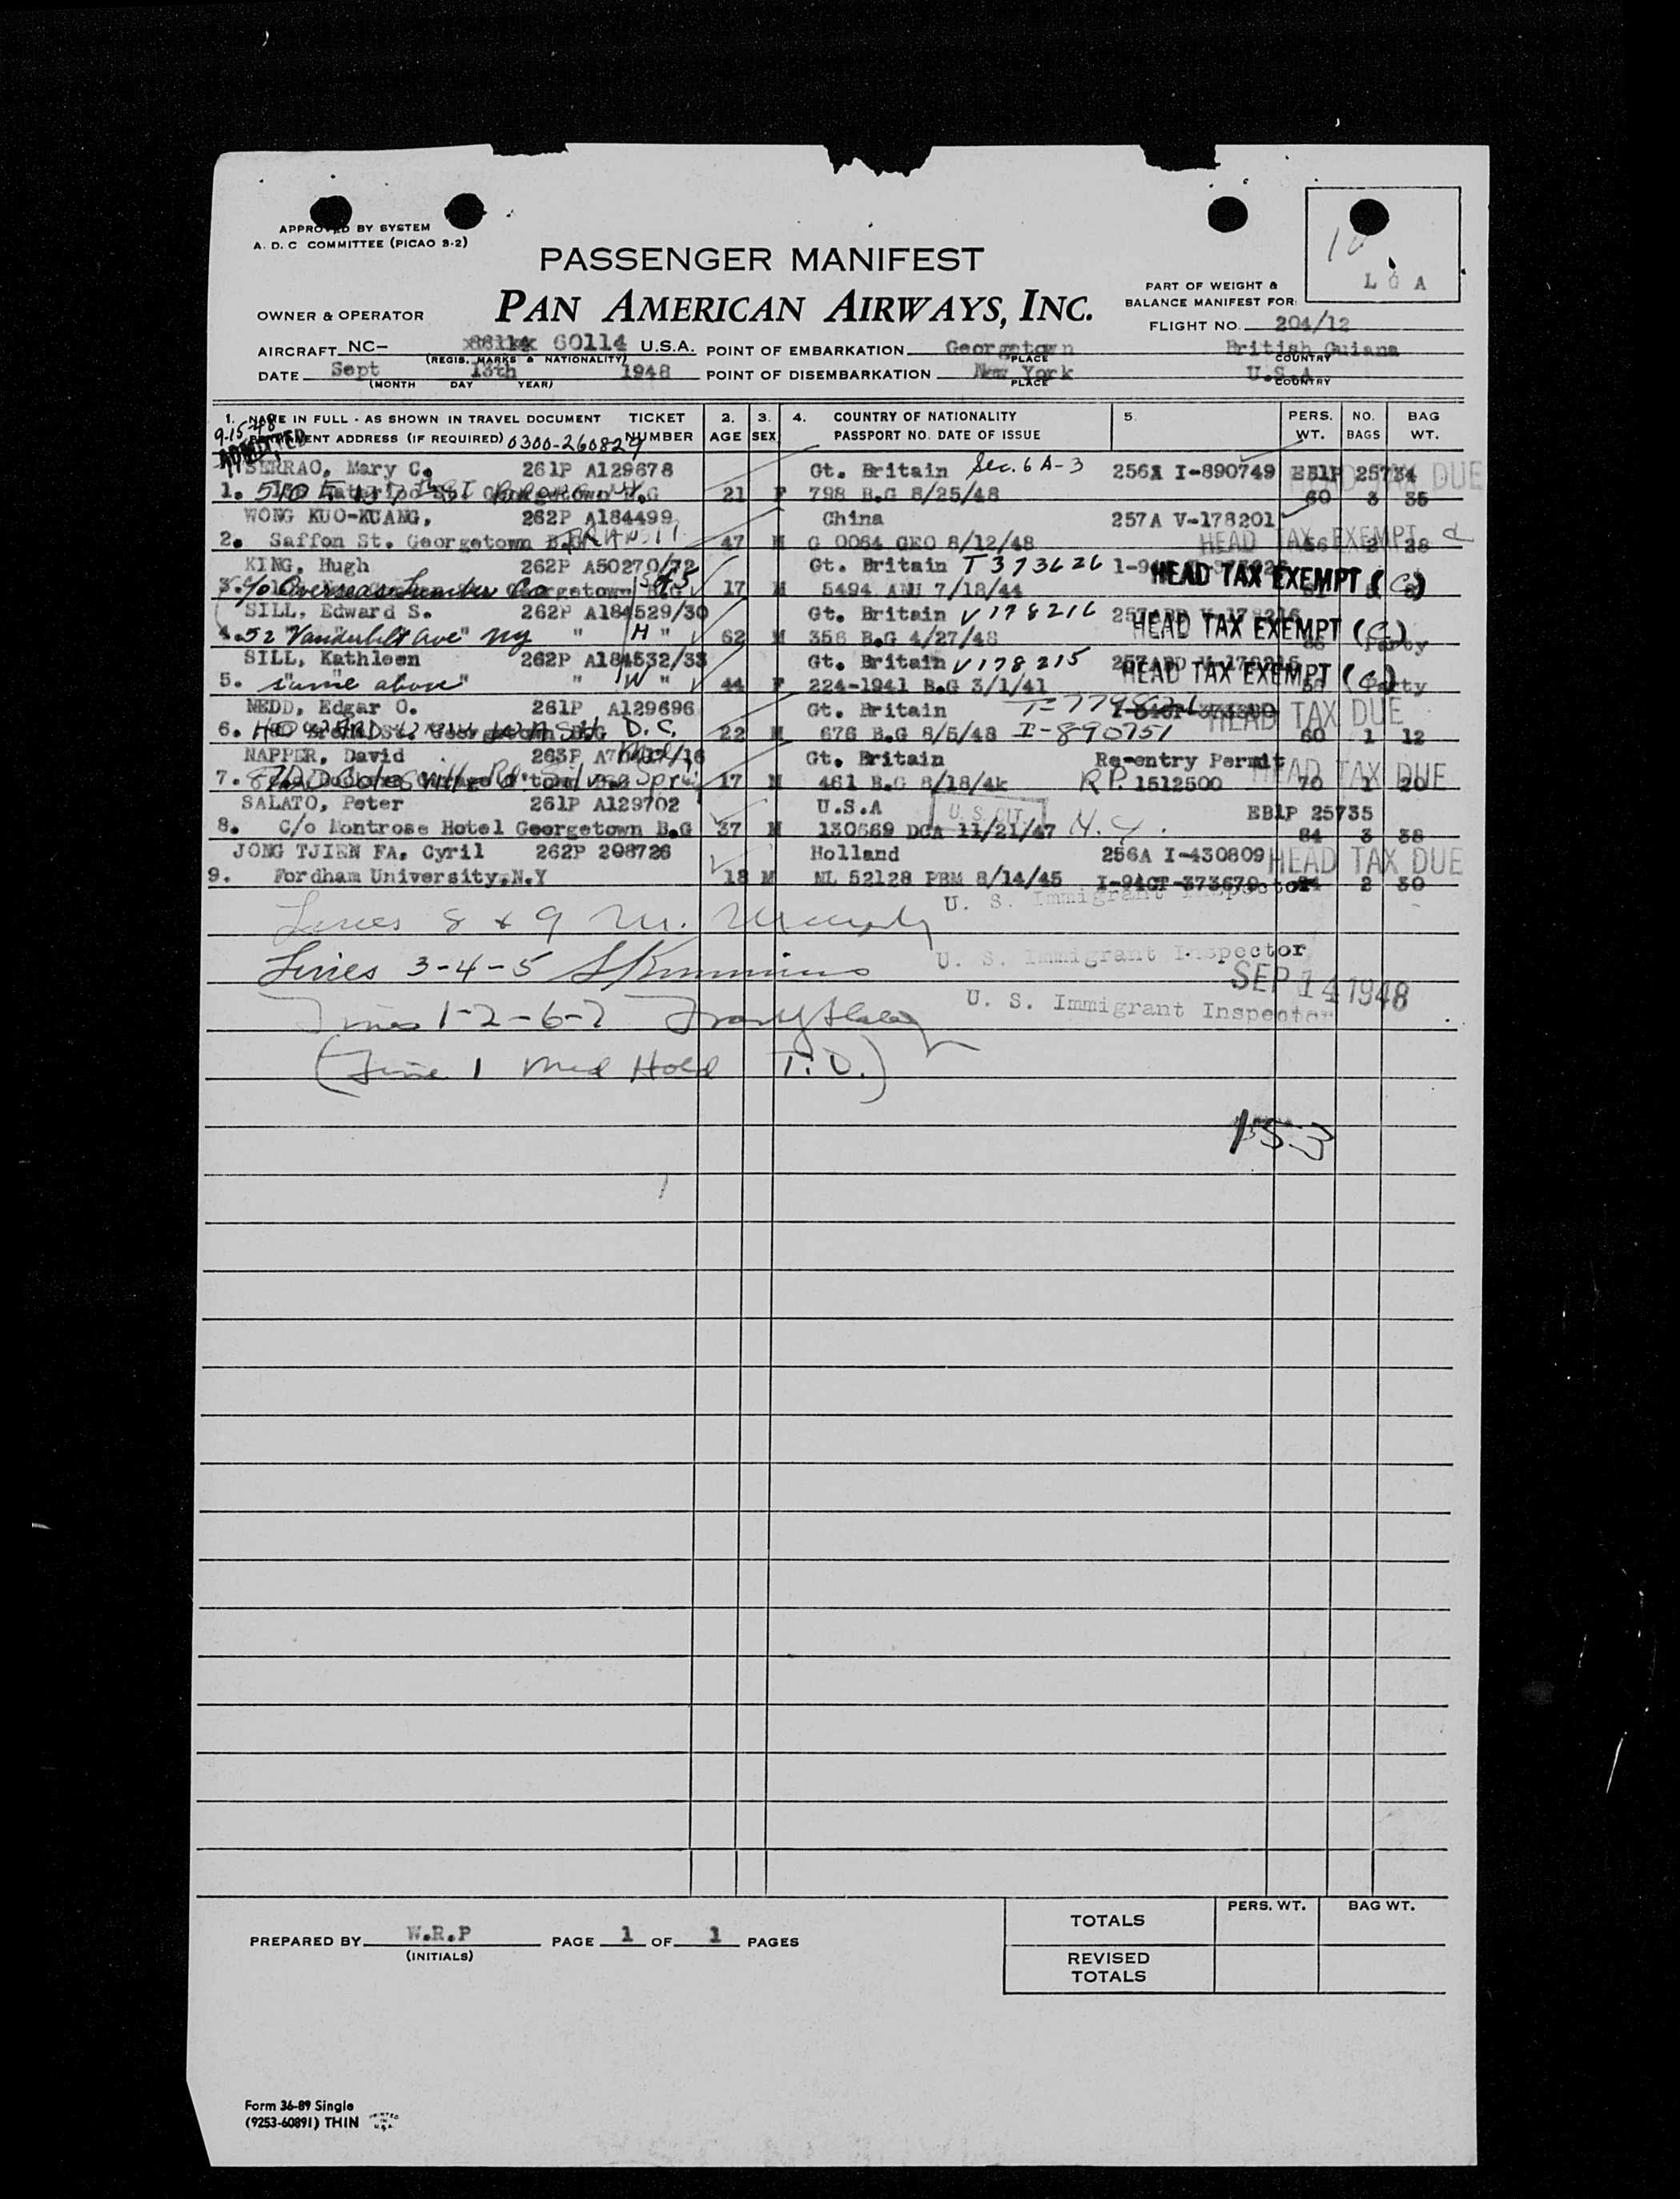 APPROVED BY SYSTEM
A. D. C COMMITTEE (PICAO 3-2)
PASSENGER MANIFEST
PAN AMERICAN AIRWAYS, INC.
L G A
PART OF WEIGHT &
BALANCE MANIFEST FOR:
OWNER & OPERATOR
FLIGHT NO. 204/12
AIRCRAFT NC- 60114 U.S.A. POINT OF EMBARKATION Georgetown British Guiana
(REGIS. MARKS & NATIONALITY) PLACE COUNTRY
DATE Sept 13th 1948 POINT OF DISEMBARKATION New York U.S.A
(MONTH DAY YEAR) PLACE COUNTRY
1. NAME IN FULL - AS SHOWN IN TRAVEL DOCUMENT TICKET 2. 3. 4. COUNTRY OF NATIONALITY 5. PERS. NO. BAG
PERMANENT ADDRESS (IF REQUIRED) 0300-260829 NUMBER AGE SEX PASSPORT NO. DATE OF ISSUE WT. BAGS WT.
9-15-48
ADMITTED
SERRAO, Mary C. 261P A129678 Gt. Britain Sec. 6 A-3 256A I-890749 EB1P 25734 HEAD TAX DUE
1. Georgetown B.G 21 F 798 B.G 8/25/48 60 3 35
WONG KUO-KUANG, 262P A184499 China 257A V-178201
2. Saffon St. Georgetown TRANSIT 47 M G 0064 GEO 8/12/48 HEAD TAX EXEMPT 2 28
KING, Hugh 262P A50270/72 Gt. Britain T373626
3. c/o Overseas Lumber Co Georgetown B.G 17 M 5494 ANU 7/18/44 HEAD TAX EXEMPT (C)
SILL, Edward S. 262P A184529/30 Gt. Britain V178216
4. 52 "Vanderbilt Ave" NY " H " 62 M 356 B.G 4/27/48 HEAD TAX EXEMPT (C) Party
SILL, Kathleen 262P A184532/33 Gt. Britain V178215
5. "same above" " W " 44 F 224-1941 B.G 3/1/41 HEAD TAX EXEMPT (C) Party
NEDD, Edgar O. 261P A129696 Gt. Britain
6. HOWARD UNIV WASH D.C. 22 M 676 B.G 8/5/48 I-890751 HEAD TAX DUE 60 1 12
NAPPER, David 263P Gt. Britain Re-entry Permit
7. 17 M 461 B.G 8/18/4k R.P. 1512500 HEAD TAX DUE 70 1 20
SALATO, Peter 261P A129702 U.S.A U.S. CIT. EB1P 25735
8. c/o Montrose Hotel Georgetown B.G 37 M 130669 DCA 11/21/47 N.Y. 84 3 38
JONG TJIEN FA, Cyril 262P 208726 Holland 256A I-430809 HEAD TAX DUE
9. Fordham University,N.Y 18 M NL 52128 PBM 8/14/45 I-94GT-373670 2 30
Lines 8 & 9 M. U. S. Immigrant Inspector
Lines 3-4-5 U. S. Immigrant Inspector
SEP 14 1948
Lines 1-2-6-7 U. S. Immigrant Inspector
(Line 1 Med Hold T.D.)
153
TOTALS PERS. WT. BAG WT.
PREPARED BY W.R.P PAGE 1 OF 1 PAGES
(INITIALS)
REVISED
TOTALS
Form 36-89 Single
(9253-60891) THIN PRINTED IN U.S.A.